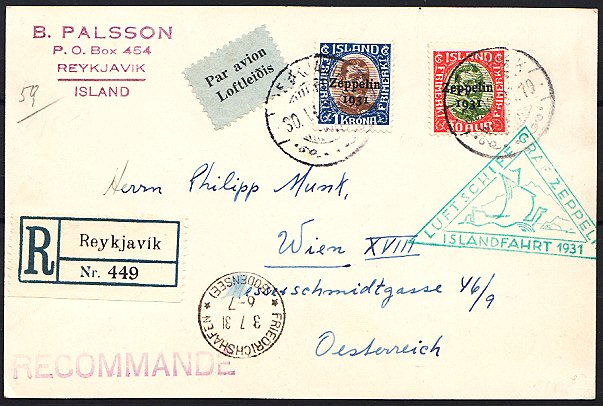 B. PALSSON
P. O. Box 454
REYKJAVIK
ISLAND
59
Par avion
Loftleiðis
ISLAND
FRIMERKI
Zeppelin
1931
1 KRÓNA
ISLAND
FRIMERKI
Zeppelin
1931
30 AUR
LUFTSCHIFF GRAF ZEPPELIN
ISLANDFAHRT 1931
Herrn Philipp Munk,
Wien XVIII
Messerschmidtgasse 46/9
Oesterreich
R
Reykjavík
Nr. 449
FRIEDRICHSHAFEN
(BODENSEE)
3 7 31
6-7
RECOMMANDE